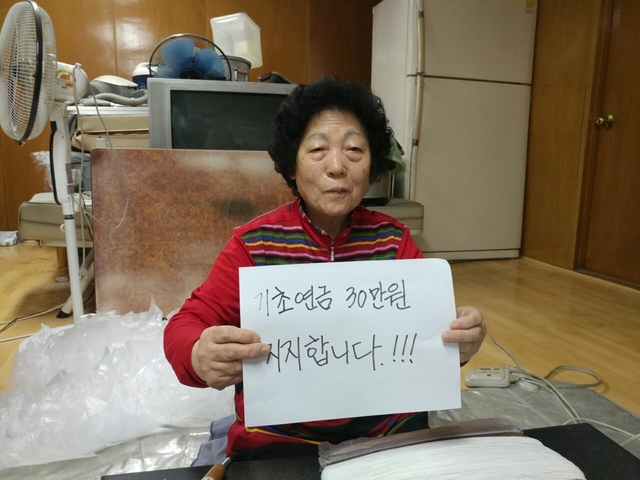 기초연금 30만원
지지합니다.!!!